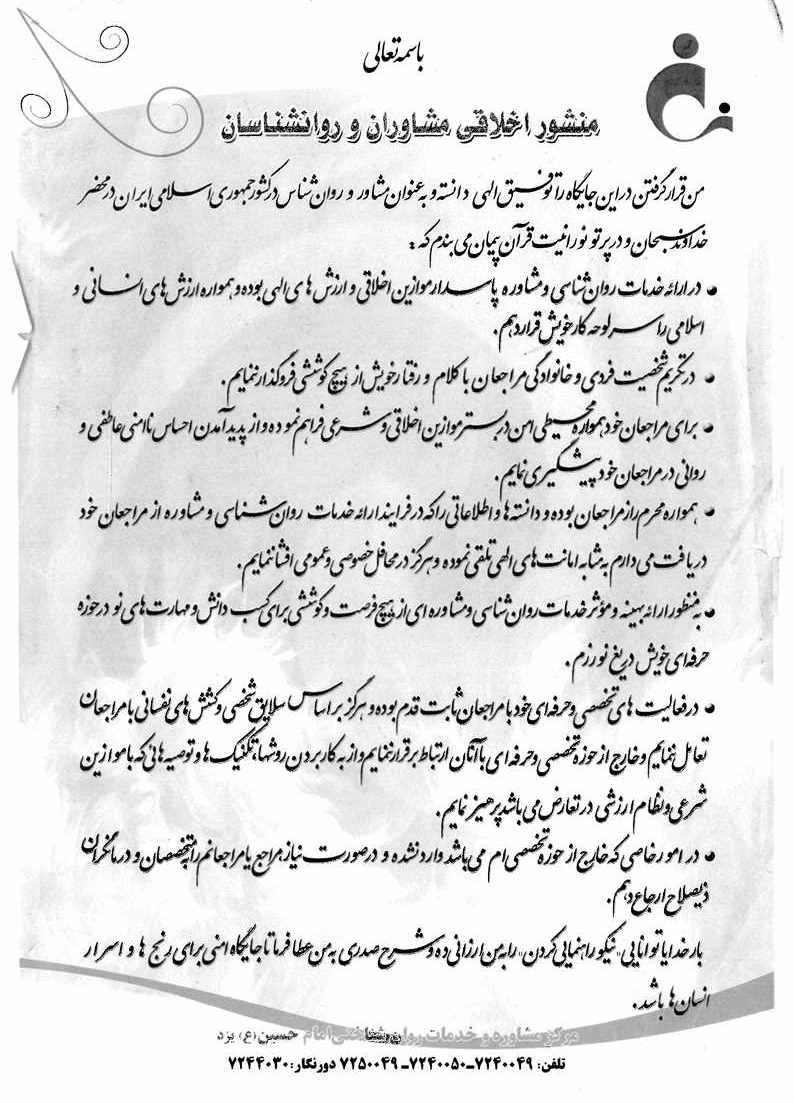 باسمه تعالی
منشور اخلاقی مشاوران و روانشناسان
من قرار گرفتن در این جایگاه را توفیق الهی دانسته و به عنوان مشاور و روان شناس در کشور جمهوری اسلامی ایران در محضر
خداوند سبحان و در پرتو نورانیت قرآن پیمان می بندم که :
• در ارائه خدمات روان شناسی و مشاوره پاسدار موازین اخلاقی و ارزش های الهی بوده و همواره ارزش های انسانی و
اسلامی را سر لوحه کار خویش قرار دهم.
• در تکریم شخصیت فردی و خانوادگی مراجعان با کلام و رفتار خویش از هیچ کوششی فروگذار ننمایم.
• برای مراجعان خود همواره محیطی امن در بستر موازین اخلاقی و شرعی فراهم نموده و از پدید آمدن احساس ناامنی عاطفی و
روانی در مراجعان خود پیشگیری نمایم.
• همواره محرم راز مراجعان بوده و دانسته ها و اطلاعاتی را که در فرایند ارائه خدمات روان شناسی و مشاوره از مراجعان خود
دریافت می دارم به مثابه امانت های الهی تلقی نموده و هرگز در محافل خصوصی و عمومی افشا ننمایم.
• به منظور ارائه بهینه و مؤثر خدمات روان شناسی و مشاوره ای از هیچ فرصت و کوششی برای کسب دانش و مهارت های نو در حوزه
حرفه ای خویش دریغ نورزم.
• در فعالیت های تخصصی و حرفه ای خود با مراجعان ثابت قدم بوده و هرگز بر اساس سلایق شخصی و کشش های نفسانی با مراجعان
تعامل ننمایم و خارج از حوزه تخصصی و حرفه ای با آنان ارتباط برقرار ننمایم و از به کار بردن روشها، تکنیک ها و توصیه هائی که با موازین
شرعی و نظام ارزشی در تعارض می باشد پرهیز نمایم.
• در امور خاصی که خارج از حوزه تخصصی ام می باشد وارد نشده و در صورت نیاز مراجع یا مراجعانم را به متخصصان و درمانگران
ذیصلاح ارجاع دهم.
بار خدایا توانایی "نیکو راهنمایی کردن" را به من ارزانی ده و شرح صدری به من عطا فرما تا جایگاه امنی برای رنج ها و اسرار
انسان ها باشد.
مرکز مشاوره و خدمات روان شناختی امام حسین (ع) یزد
تلفن: ۷۲۴۰۰۴۹-۷۲۴۰۰۵۰-۷۲۵۰۰۴۹ دورنگار: ۷۲۴۴۰۳۰